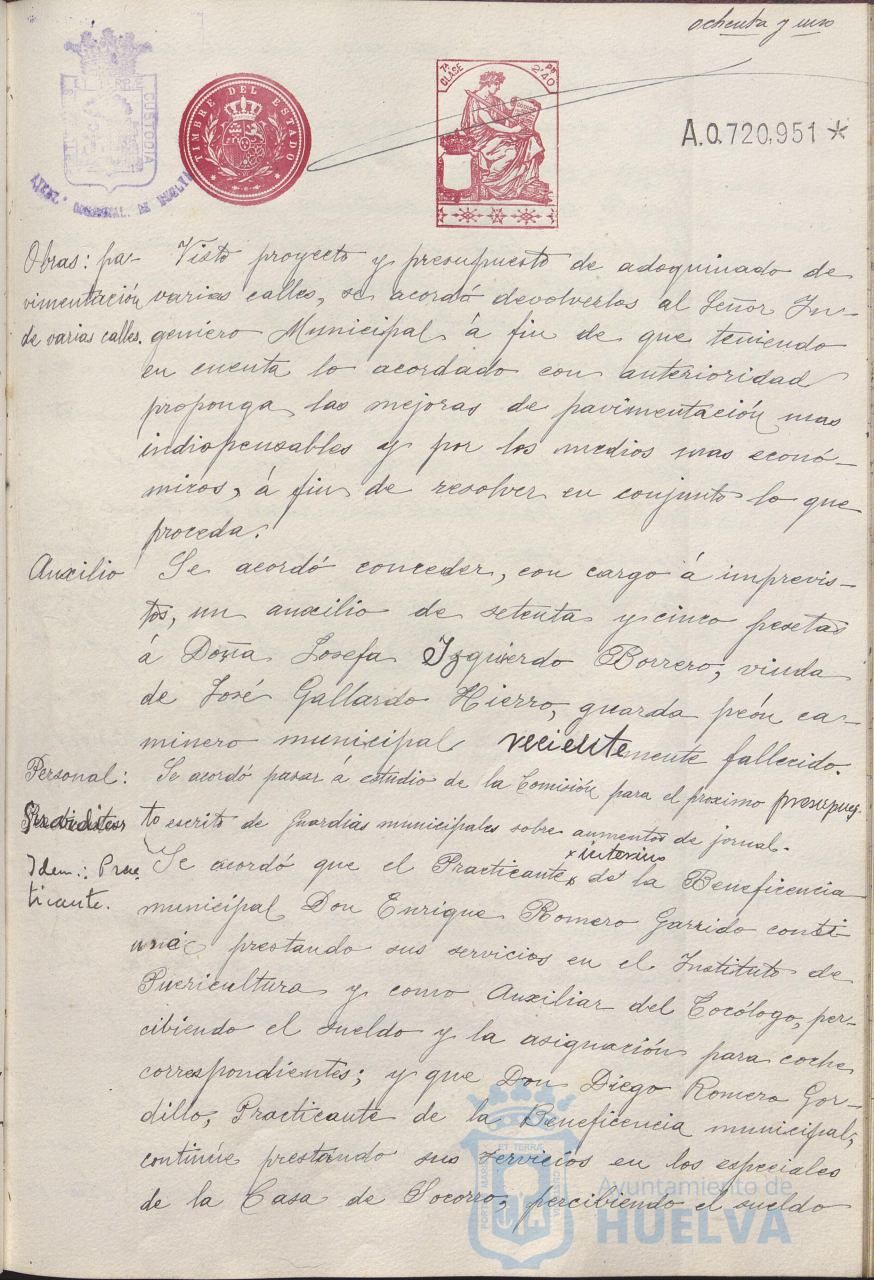 ochenta y uno
CUSTODIA
TIMBRE DEL ESTADO
7ª CLASE
2'40
A.0.720,951 *
Obras: pa-
vimentación
de varias calles.
Visto proyecto y presupuesto de adoquinado de
varias calles, se acordó devolverlos al Señor In-
geniero Municipal á fin de que teniendo
en cuenta lo acordado con anterioridad
proponga las mejoras de pavimentación mas
indispensables y por los medios mas econó-
micos, á fin de resolver en conjunto lo que
proceda.
Auxilio
Se acordó conceder, con cargo á imprevis-
tos, un auxilio de setenta y cinco pesetas
á Doña Josefa Izquierdo Borrero, viuda
de José Gallardo Hierro, guarda peón ca-
minero municipal recientemente fallecido.
Personal:
Se acordó pasar á estudio de la Comisión para el proximo presupues-
to escrito de Guardias municipales sobre aumentos de jornal.
Idem.: Prac
ticante.
Se acordó que el Practicante × interino × de la Beneficencia
municipal Don Enrique Romero Garrido conti
núe prestando sus servicios en el Instituto de
Puericultura y como Auxiliar del Tocólogo, per-
cibiendo el sueldo y la asignación para coche
correspondientes; y que Don Diego Romero Gor-
dillo, Practicante de la Beneficencia municipal,
continúe prestando sus servicios en los especiales
de la Casa de Socorro, percibiendo el sueldo
Ayuntamiento de
HUELVA